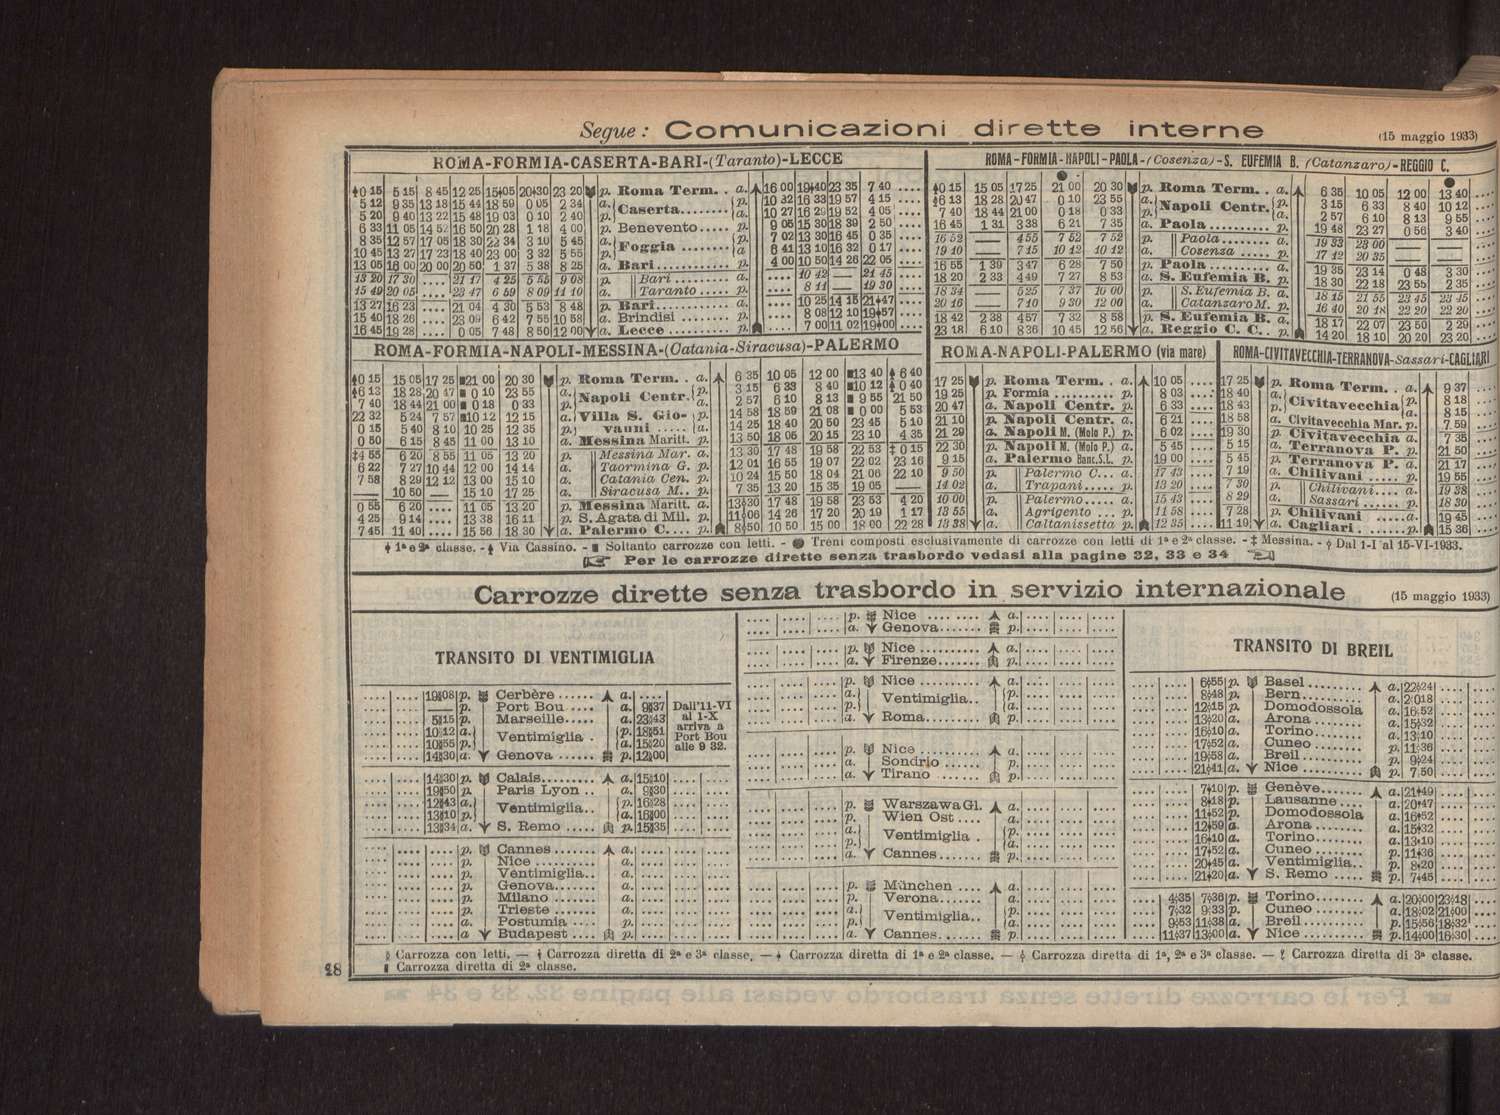 Segue: Comunicazioni dirette interne (15 maggio 1933)
ROMA-FORMIA-CASERTA-BARI-(Taranto)-LECCE
0 15 5 15 8 45 12 25 15 05 20 30 23 20 p. Roma Term. . a. 16 00 19 40 23 35 7 40 ....
5 12 9 35 13 18 15 44 18 59 0 05 2 34 a. Caserta........ p. 10 32 16 33 19 57 4 15 ....
5 20 9 40 13 22 15 48 19 03 0 10 2 40 p. a. 10 27 16 29 19 52 4 05 ....
6 33 11 05 14 52 16 50 20 28 1 18 4 00 p. Benevento..... p. 9 05 15 30 18 39 2 50 ....
8 35 12 57 17 05 18 30 22 34 3 10 5 45 a. Foggia ........ p. 7 02 13 30 16 45 0 35 ....
10 45 13 27 17 23 18 40 23 00 3 32 5 55 p. a. 6 41 13 10 16 32 0 17 ....
13 05 16 00 20 00 20 50 1 37 5 38 8 25 a. Bari............ p. 4 00 10 50 14 26 22 05 ....
13 20 17 30 .... 21 17 4 25 5 55 9 08 p. Bari ......... a. 10 42 — 21 45 ....
15 49 20 05 .... 23 47 6 59 8 09 11 10 a. Taranto ..... p. 8 11 — 19 30 ....
13 27 16 23 .... 21 04 4 30 5 53 8 48 p. Bari............ a. 10 25 14 15 21 47 ....
15 40 18 26 .... 23 09 6 42 7 55 10 58 a. Brindisi ....... p. 8 08 12 10 19 57 ....
16 45 19 28 .... 0 05 7 48 8 50 12 00 a. Lecce .......... p. 7 00 11 02 19 00 ....
ROMA-FORMIA-NAPOLI-PAOLA-(Cosenza)-S. EUFEMIA B. (Catanzaro)-REGGIO C.
0 15 15 05 17 25 21 00 20 30 p. Roma Term. . a. 6 35 10 05 12 00 13 40
6 13 18 28 20 47 0 10 23 55 a. Napoli Centr. p. 3 15 6 33 8 40 10 12
7 40 18 44 21 00 0 18 0 33 p. a. 2 57 6 10 8 13 9 55
16 45 1 31 3 38 6 21 7 35 a. Paola .......... p. 19 48 23 27 0 56 3 40
16 52 — 4 55 7 52 7 52 p. Paola ........ a. 19 33 23 00 — —
19 10 — 7 15 10 12 10 12 a. Cosenza ..... p. 17 12 20 35 — —
16 55 1 39 3 47 6 28 7 50 p. Paola .......... a. 19 35 23 14 0 48 3 30
18 20 2 33 4 49 7 27 8 53 a. S. Eufemia B. p. 18 30 22 18 23 55 2 35
18 34 — 5 25 7 37 10 00 p. S. Eufemia B. a. 18 15 21 55 23 45 23 45
20 16 — 7 10 9 30 12 00 a. Catanzaro M. p. 16 40 20 18 22 20 22 20
18 42 2 38 4 57 7 32 8 58 p. S. Eufemia B. a. 18 17 22 07 23 50 2 29
23 18 6 10 8 36 10 45 12 56 a. Reggio C. C. . p. 14 20 18 10 20 20 23 20
ROMA-FORMIA-NAPOLI-MESSINA-(Catania-Siracusa)-PALERMO
0 15 15 05 17 25 21 00 20 30 p. Roma Term. . a. 6 35 10 05 12 00 13 40 6 40
6 13 18 28 20 47 0 10 23 55 a. Napoli Centr. p. 3 15 6 33 8 40 10 12 0 40
7 40 18 44 21 00 0 18 0 33 p. a. 2 57 6 10 8 13 9 55 21 50
22 32 5 24 7 57 10 12 12 15 a. Villa S. Gio- p. 14 58 18 59 21 08 0 00 5 53
0 15 5 40 8 10 10 25 12 35 p. vanni ..... a. 14 25 18 40 20 50 23 45 5 10
0 50 6 15 8 45 11 00 13 10 a. Messina Maritt. p. 13 50 18 05 20 15 23 10 4 35
‡4 55 6 20 8 55 11 05 13 20 p. Messina Mar. a. 13 30 17 48 19 58 22 53 ‡ 0 15
6 22 7 27 10 44 12 00 14 14 a. Taormina G. p. 12 01 16 55 19 07 22 02 23 16
7 58 8 29 12 12 13 00 15 10 a. Catania Cen. p. 10 24 15 50 18 04 21 06 22 10
— 10 50 — 15 10 17 25 a. Siracusa M.. p. 7 35 13 20 15 35 19 05 —
0 55 6 20 .... 11 05 13 20 p. Messina Maritt. a. 13 30 17 48 19 58 23 53 4 20
4 25 9 14 .... 13 38 16 11 p. S. Agata di Mil. p. 11 06 14 26 17 20 20 19 1 17
7 45 11 40 .... 15 56 18 30 a. Palermo C.... p. 8 50 10 50 15 00 18 00 22 28
ROMA-NAPOLI-PALERMO (via mare)
17 25 p. Roma Term. . a. 10 05 ....
19 25 p. Formia .......... p. 8 03 ....
20 47 a. Napoli Centr. p. 6 33 ....
21 10 p. Napoli Centr. a. 6 21 ....
21 29 a. Napoli M. (Molo P.) p. 6 02 ....
22 30 p. Napoli M. (Molo P.) a. 5 45 ....
9 15 a. Palermo Banc. S.L. p. 19 00 ....
9 50 p. Palermo C... a. 17 43 ....
14 02 a. Trapani..... p. 13 20 ....
10 00 p. Palermo..... a. 15 43 ....
13 55 a. Agrigento ... p. 11 58 ....
13 38 a. Caltanissetta p. 12 35 ....
ROMA-CIVITAVECCHIA-TERRANOVA-Sassari-CAGLIARI
17 25 p. Roma Term. . a. 9 37 ....
18 40 a. Civitavecchia p. 8 18 ....
18 43 p. a. 8 15 ....
18 58 a. Civitavecchia Mar. p. 7 59 ....
19 30 p. Civitavecchia a. 7 35 ....
5 15 a. Terranova P. p. 21 50 ....
5 45 p. Terranova P. a. 21 17 ....
7 19 a. Chilivani ..... p. 19 55 ....
7 30 p. Chilivani.... a. 19 38 ....
8 29 a. Sassari ...... p. 18 30 ....
7 28 p. Chilivani ..... a. 19 45 ....
11 19 a. Cagliari....... p. 15 36 ....
1ª e 2ª classe. - Via Cassino. - Soltanto carrozze con letti. - Treni composti esclusivamente di carrozze con letti di 1ª e 2ª classe. - ‡ Messina. - Dal 1-I al 15-VI-1933.
Per le carrozze dirette senza trasbordo vedasi alla pagine 32, 33 e 34
Carrozze dirette senza trasbordo in servizio internazionale (15 maggio 1933)
TRANSITO DI VENTIMIGLIA
19 08 p. Cerbère ...... a. ....
— p. Port Bou .... a. 9 37
5 15 p. Marseille.... a. 23 43
10 12 a. Ventimiglia . p. 18 51
10 55 p. a. 15 20
14 30 a. Genova ...... p. 12 00
Dall'11-VI
al 1-X
arriva a
Port Bou
alle 9 32.
14 30 p. Calais......... a. 15 10
19 50 p. Paris Lyon .. a. 9 30
12 43 a. Ventimiglia.. p. 16 28
13 10 p. a. 16 00
13 34 a. S. Remo ..... p. 15 35
p. Cannes....... a.
p. Nice .......... a.
p. Ventimiglia.. a.
p. Genova....... a.
p. Milano ....... a.
p. Trieste ...... a.
p. Postumia .... a.
a Budapest .... p.
p. Nice .... .... ... a.
a. Genova....... p.
p. Nice .......... a.
a. Firenze....... p.
p. Nice .......... a.
a. Ventimiglia.. p.
p. a.
a. Roma......... p.
p. Nice .......... a.
a. Sondrio ...... p.
a. Tirano ....... p.
p. Warszawa Gl. a.
p. Wien Ost .... a.
a. Ventimiglia . p.
p. a.
a. Cannes....... p.
p. München .... a.
p. Verona....... a.
a. Ventimiglia.. p.
p. a.
a. Cannes....... p.
TRANSITO DI BREIL
6 55 p. Basel......... a. 22 24
8 48 p. Bern.......... a. 20 18
12 15 p. Domodossola a. 16 52
13 20 a. Arona ........ p. 15 32
16 10 a. Torino........ p. 13 10
17 52 a. Cuneo ........ p. 11 36
19 58 a. Breil .......... p. 9 24
21 41 a. Nice .......... p. 7 50
7 10 p. Genève....... a. 21 49
8 18 p. Lausanne .... a. 20 47
11 52 p. Domodossola a. 16 52
12 59 a. Arona ........ a. 15 32
16 10 a. Torino........ a. 13 10
17 52 a. Cuneo ........ p. 11 36
20 45 a. Ventimiglia.. p. 8 20
21 20 a. S. Remo ..... p. 7 45
4 35 7 38 p. Torino ........ a. 20 00 23 18
7 32 9 33 p. Cuneo ........ a. 18 02 21 00
9 53 11 38 a. Breil .......... p. 15 56 18 32
11 37 13 00 a. Nice .......... p. 14 00 16 30
Carrozza con letti. — Carrozza diretta di 2ª e 3ª classe. — Carrozza diretta di 1ª e 2ª classe. — Carrozza diretta di 1ª, 2ª e 3ª classe. — Carrozza diretta di 3ª classe.
Carrozza diretta di 2ª classe.
18